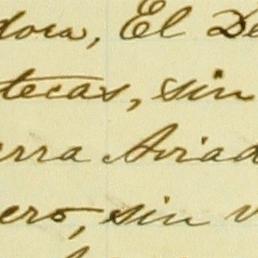 dora, El De
tecas, sin
rra Aviad
ero, sin v